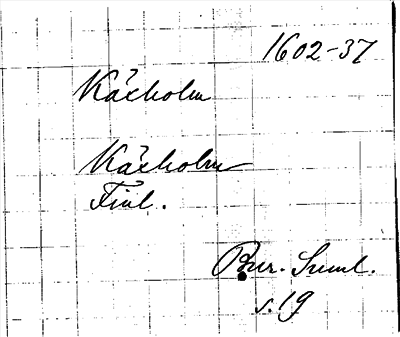 1602-37
Käxholm
Käxholm
Finl.
Bur. Suml.
s. 19